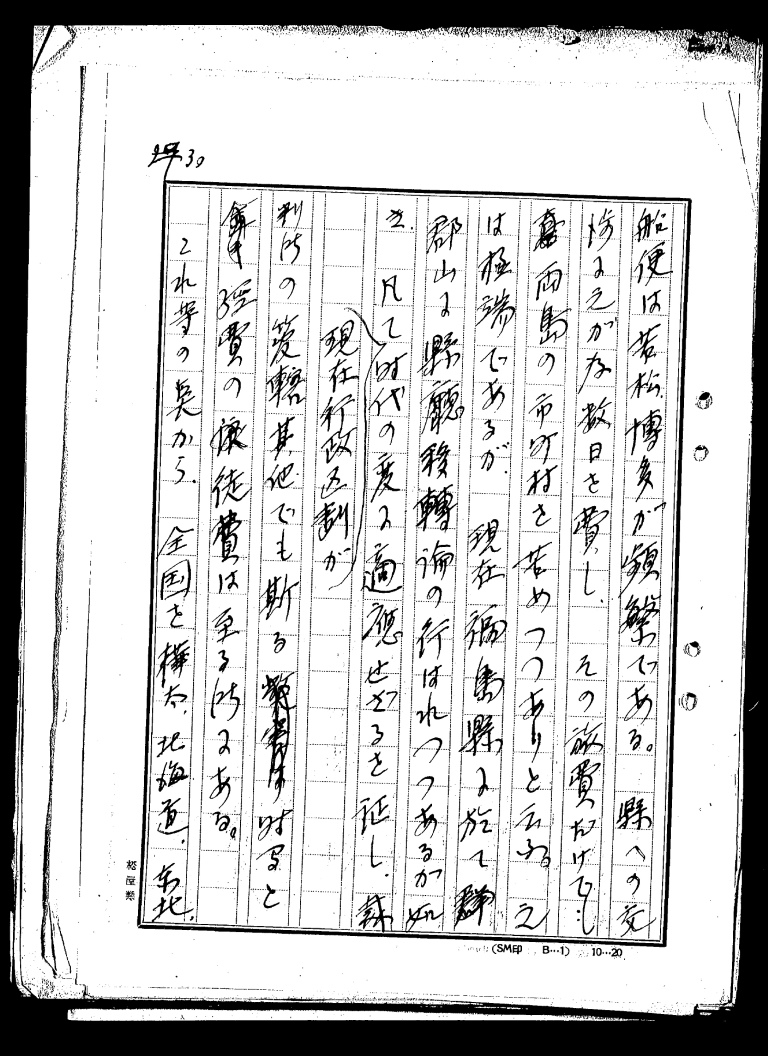 船便は若松、博多が頻繁である。縣への交
渉に之がな数日を費し、その旅費だけでも
両島の市町村を苦めつつありと云ふ。之
は極端であるが、現在福島縣に於て
郡山に縣廳移轉論の行はれつつあるが如
き、凡て时代の度に適應せざるを証し、裁
現在行政区劃が
判所の管轄其他でも斯る时間と
經費の徒費は至る所にある。
これ等の点から、全国を樺太、北海道、东北、
松屋製
(SM印 B…1) 10…20